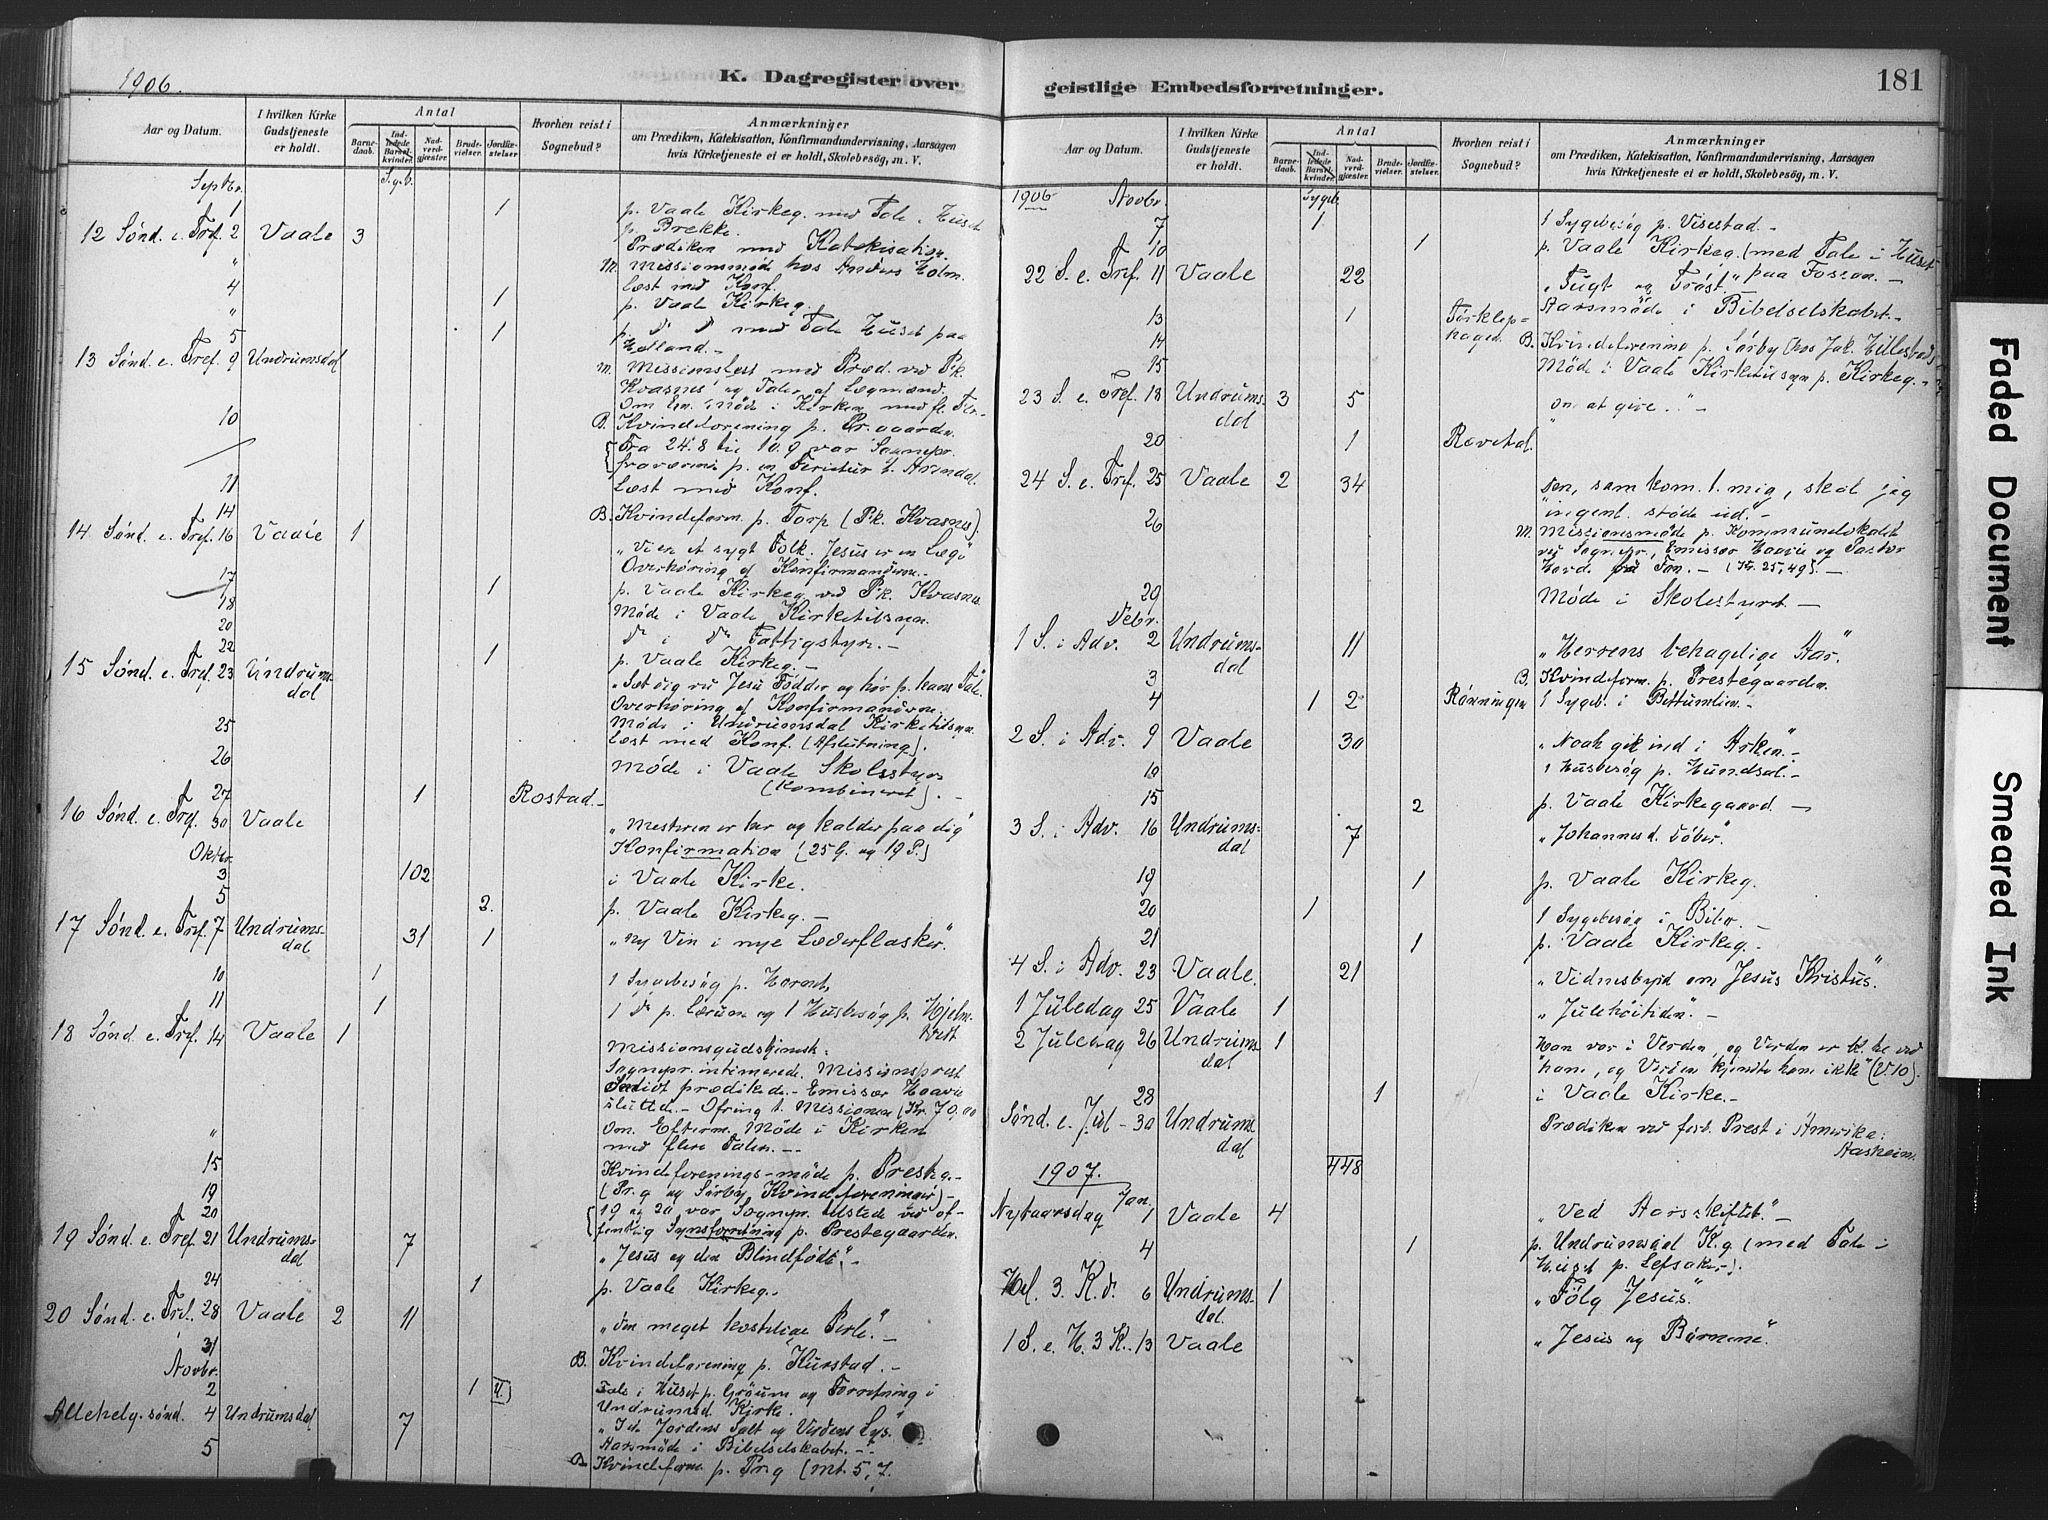 1906.
K. Dagregister over
geistlige Embedsforretninger.
181
Aar og Datum.
I hvilken Kirke Gudstjeneste er holdt.
Antal
Barnedaab.
Indledede Barselkvinder.
Nadverdgjæster.
Brudevielser.
Jordfæstelser.
Hvorhen reist i Sognebud?
Anmærkninger
om Prædiken, Katekisation, Konfirmandundervisning, Aarsagen
hvis Kirketjeneste ei er holdt, Skolebesög, m. V.
Septbr. Sygeb.
1 1 p. Vaale Kirkeg. med Tale i Huset
p. Brekke.
12 Sönd. e. Tref. 2 Vaale 3 Prædiken med Katekisation.
" M. Missionsmöde hos Anders Holm.
4 Læst med Konf.
" 1 p. Vaale Kirkeg.
5 1 p. do do med Tale Huset paa
Holland.-
13 Sönd. e. Tref. 9 Undrumsdal M. Missionsfest med Præd. ved P.k.
Kvasnes og Taler af Lægmænd.
Om Em. Möde i Kirken med fl. Tlr.-
10 B. Kvindeforening p. Pr.gaarden.
Fra 24.8 til 10.9 var Sognepr.
fraværende p. en Ferietur t. Arendal.
11 Læst med Konf.
14 B. Kvindeform. p. Torp (P.k. Kvasnes).
14 Sönd. e. Tref. 16 Vaale 1 "Vi er et sygt Folk. Jesus er en Læge"
Overhöring af Konfirmanderne.-
17 1 p. Vaale Kirkeg. ved P.k. Kvasnes.
18 Möde i Vaale Kirketilsyn.
20 do i do Fattigstyre.-
22 1 p. Vaale Kirkeg.-
15 Sönd. e. Tref. 23 Undrumsdal "Sæt dig ved Jesu Födder og hör p. hans Tale
Overhöring af Konfirmanderne.
25 Möde i Undrumsdal Kirketilsyn.
Læst med Konf. (Afslutning).
26 Möde i Vaale Skolestyre
(Kombineret).-
27 1 Rostad.-
16 Sönd. e. Tref. 30 Vaale "Mesteren er her og kalder paa dig"
Konfirmation (25 G. og 19 P.)
Oktbr.
3 102 i Vaale Kirke.
5 2. p. Vaale Kirkeg.-
17 Sönd. e. Tref. 7 Undrumsdal 31 1 "ny Vin i nye Læderflasker".
10 1 1 Sygebesög p.
11 1 1 do p. Lærum og 1 Husbesög p. Hjelmtvedt
18 Sönd. e. Tref. 14 Vaale 1 Missionsgudstjeneste:
Sognepr. intimerede. Missionsprest
prædikede.- Emissær Haavie
sluttede.- Ofring t. Missionen (Kr. 70,00
" Om Efterm. Möde i Kirken
med flere Taler.--
15 Kvindeforenings-möde p. Prestg.-
19 (Pr.g og Sörby Kvindeforeninger)-
20 19 og 20 var Sognepr. tilstede ved of-
fentlig Synsforretning p. Prestegaarden.
19 Sönd. e. Tref. 21 Undrumsdal 7 "Jesus og den Blindfödt".-
24 1 p. Vaale Kirkeg.
20 Sönd. e. Tref. 28 Vaale 2 11 "den meget kostelige Perle".-
31 B. Kvindeforening p. Kurstad.-
Novbr.
2 1 Tale i Huset p. Gröum og Forretning i
Undrumsd. Kirke.
Allehelg. sönd. 4 Undrumsdal 7 "I er Jordens Salt og Verdens Lys."
Aarsmöde i Bibelselskabet.-
5 B. Kvindeform p. Pr.g (Mt. 5, 7.
Aar og Datum.
I hvilken Kirke Gudstjeneste er holdt.
Antal
Barnedaab.
Indledede Barselkvinder.
Nadverdgjæster.
Brudevielser.
Jordfæstelser.
Hvorhen reist i Sognebud?
Anmærkninger
om Prædiken, Katekisation, Konfirmandundervisning, Aarsagen
hvis Kirketjeneste ei er holdt, Skolebesög, m. V.
1906 Novbr. Sygeb.
7 1 1 Sygebesög p. Visestad.-
10 1 p. Vaale Kirkeg. (med Tale i Huset
paa Fossan.-
22 S. e. Tref. 11 Vaale 22 "Tugt og Tröst"
Aarsmöde i Bibelselskabet.-
13 1 Törklep-
hagen
14 B. Kvindeforening p. Sörby (hos Jak. Hillestad)
15 Möde i Vaale Kirketilsyn p. Kirkeg.
23 S. e. Tref. 18 Undrumsdal 3 5 "Om at give..."-
20 1 Ravedal.
24 S. e. Tref. 25 Vaale 2 34 Den, som kom. t. mig, skal jeg
"ingenl. stöde ud."-
26 M. Missionsmöde p. Kommunelokalet
ved Sognepr., Emissær Haavie og Pastor
Hord. Fon.- (Kr. 25,49).-
29 Möde i Skolestyret-
Debr.
1 S. i Adv. 2 Undrumsdal 11 "Herrens behagelige Aar".
3 B. Kvindeform. p. Prestegaarden.
4 1 2 Rönningen 1 Sygeb. i Bettumlien.-
2 S. i Adv. 9 Vaale 30 "Noah gik ind i Arken".-
10 1 Husbesög p. Hundsal.-
15 2 p. Vaale Kirkegaard.-
3 S. i Adv. 16 Undrumsdal 7 "Johannes d. Döber".
19 1 p. Vaale Kirkeg.
20 1 1 Sygebesög i Bibo.
21 1 p. Vaale Kirkeg.-
4 S. i Adv. 23 Vaale. 21 "Vidnesbyrd om Jesus Kristus".
1 Juledag 25 Vaale 1 "Julehöitiden".-
2 Juledag 26 Undrumsdal 1 Han var i Verden, og Verden er bl. til ved
"ham, og Verden kjendte ham ikke" (V.10).
28 1 i Vaale Kirke.-
Sönd. e. Jul - 30 Undrumsdal Prædiken ved forh. Prest i Amerika:
Aasheim.
448
1907.
Jan.
Nytaarsdag 1 Vaale 4 "Ved Aarsskiftet".-
4 1 p. Undrumsdal K.g (med Tale i
Huset p. Lefsaker).
Hel. 3. K. d. 6 Undrumsdal. 1 "Fölg Jesus".
1 S. e. H. 3 K. 13 Vaale "Jesus og Börnene".
Faded Document
Smeared Ink